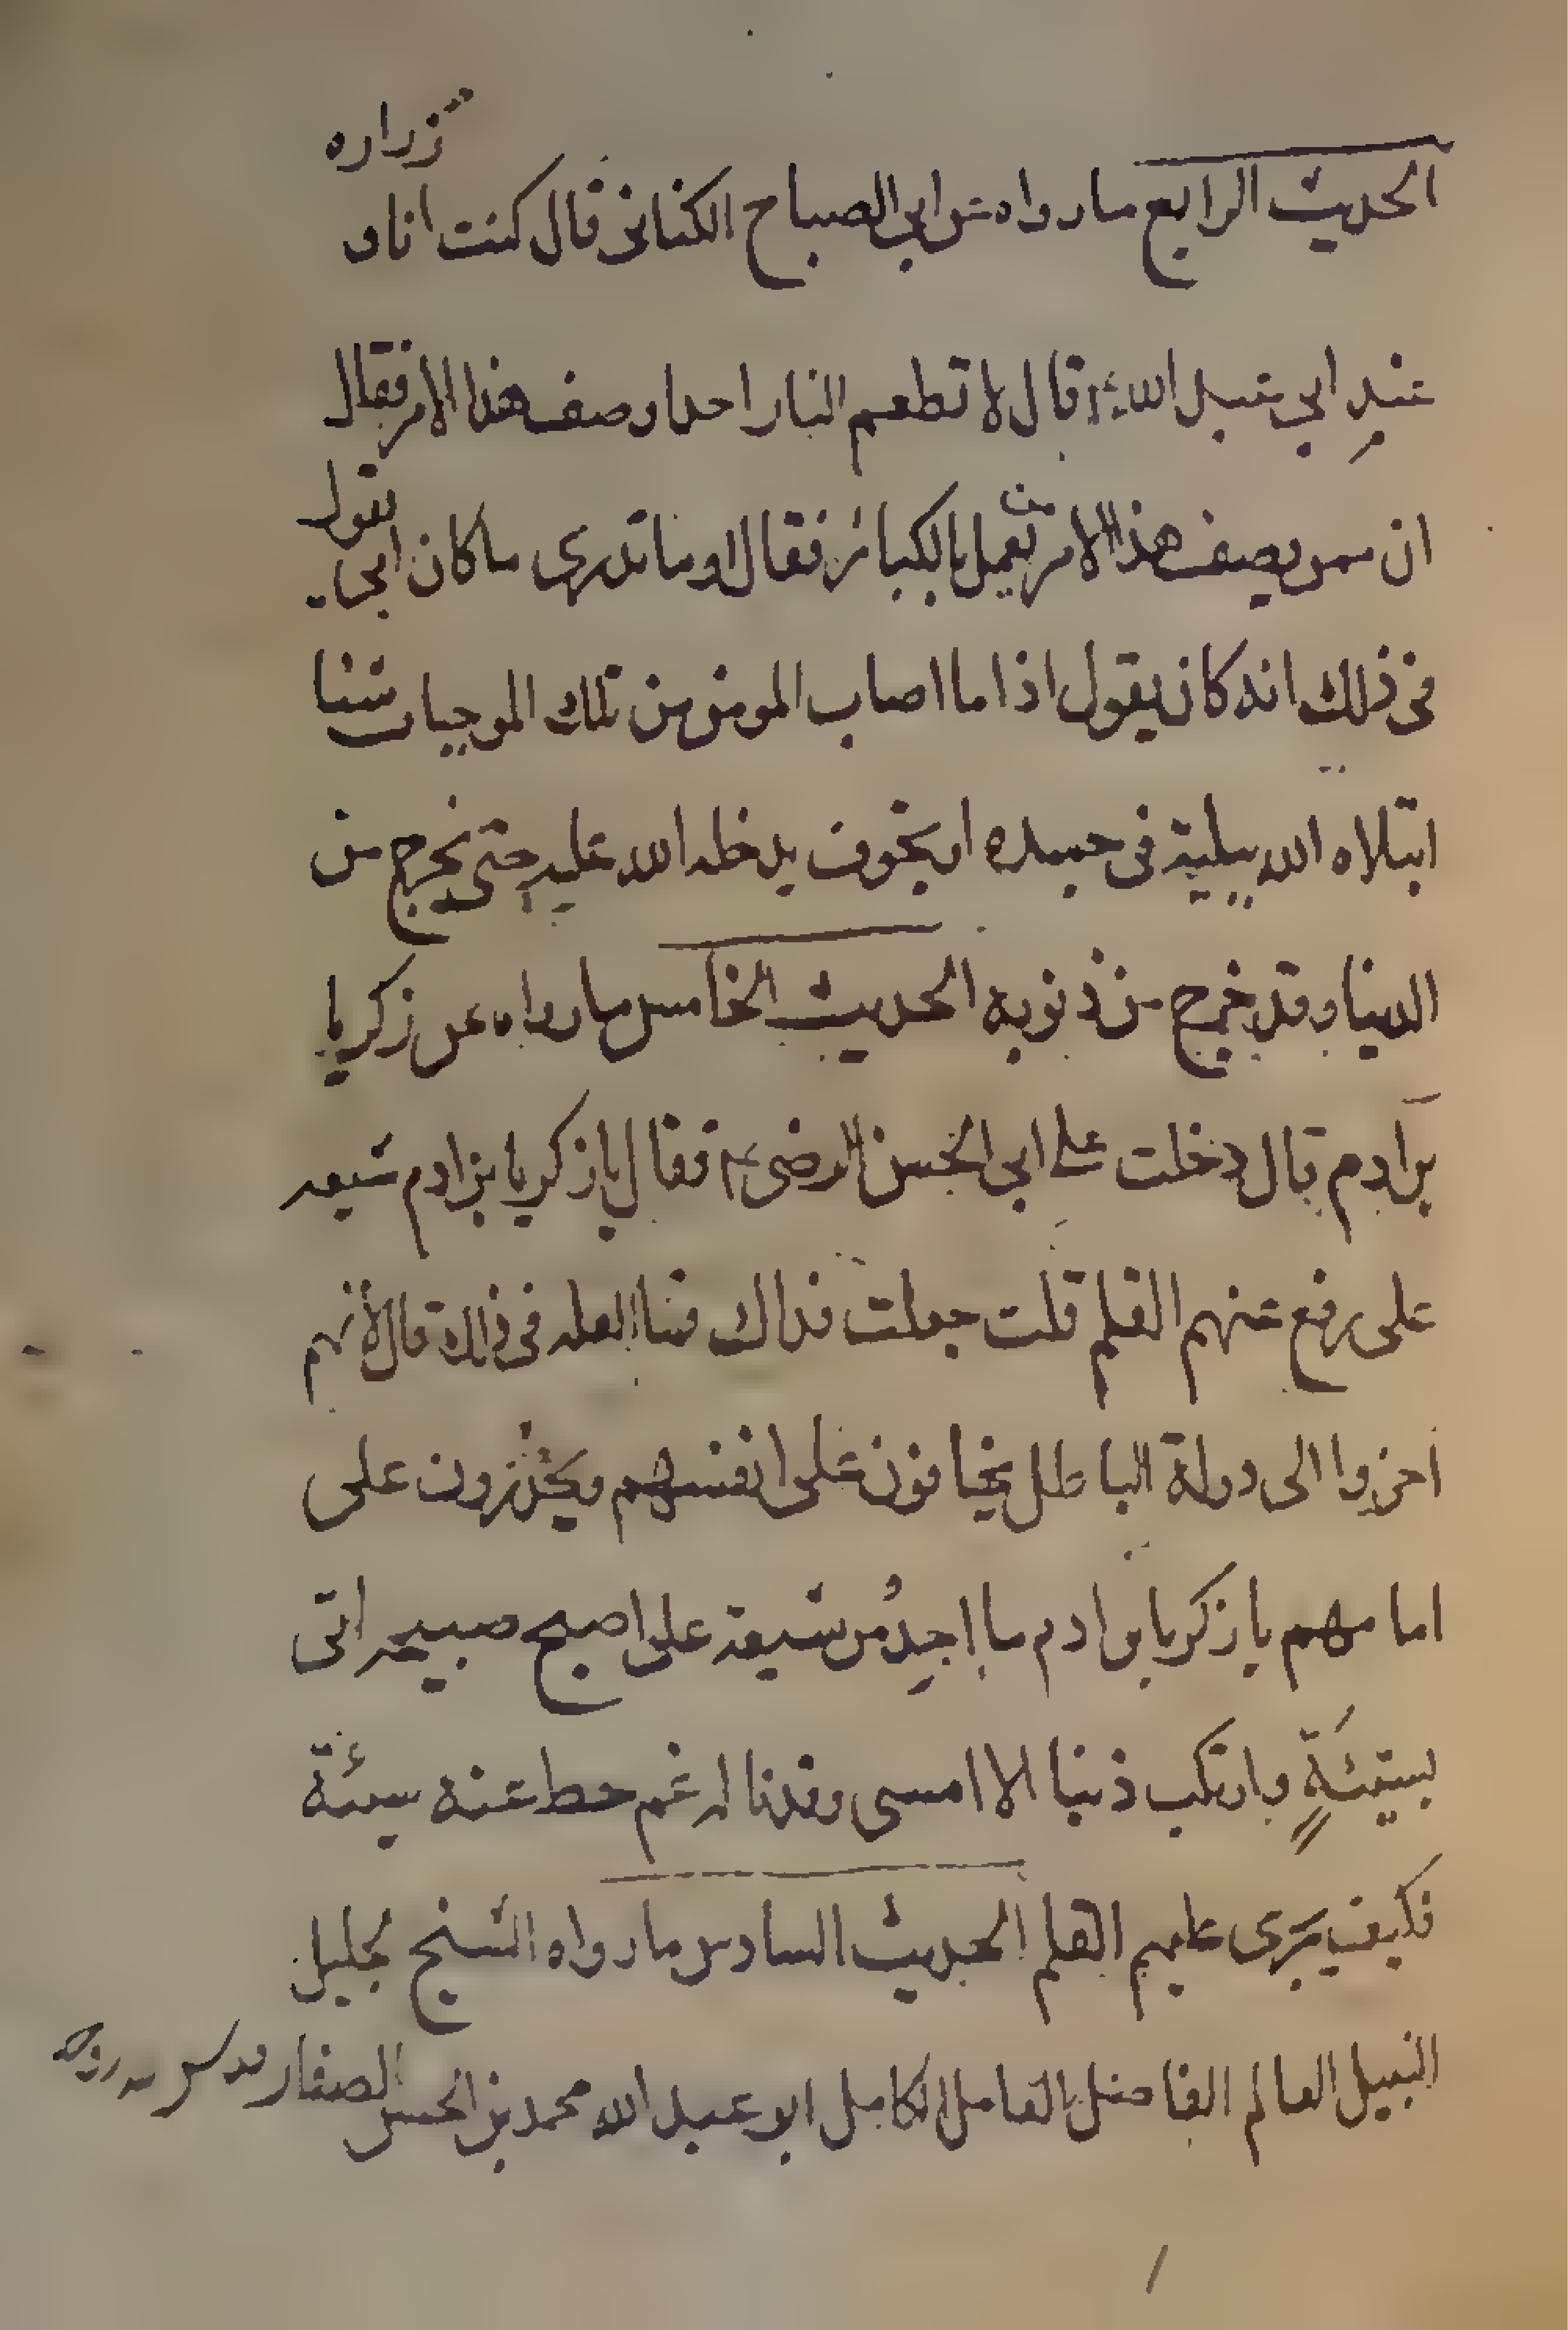 الحديث الرابع ما رواه عن ابى الصباح الكنانى قال كنت انا و زراره
عند ابي عبد الله ع قال لا تطعم النار احدا وصف هذا الامر فقال
ان ممن يصف هذا الامر من يعمل بالكبائر فقال او ما تدرى ما كان ابي يقول
فى ذلك انه كان يقول اذا ما اصاب المومن من تلك الموجبات شيئا
ابتلاه الله ببلية فى جسده او بخوف يدخله الله عليه حتى يخرج من
الدينا وقد خرج من ذنوبه الحديث الخامس ما رواه عن زكريا
بن ادم قال دخلت على ابى الحسن الرضى ع فقال يا زكريا بن ادم شيعه
على رفع عنهم القلم قلت جعلت فداك فما العله فى ذلك قال لأنهم
اخروا الى دولة الباطل يخافون على انفسهم ويحذرون على
امامهم يا زكريا بن ادم ما اجد من شيعة على اصبح صبيحه اتى
بسيئة و ارتكب ذنبا الا امسى وقد ناله غم حط عنه سيئة
فكيف يجرى عليهم القلم الحديث السادس ما رواه الشيخ الجليل
النبيل العالم الفاضل العامل الكامل ابو عبد الله محمد بن الحسن الصفار قدس سره